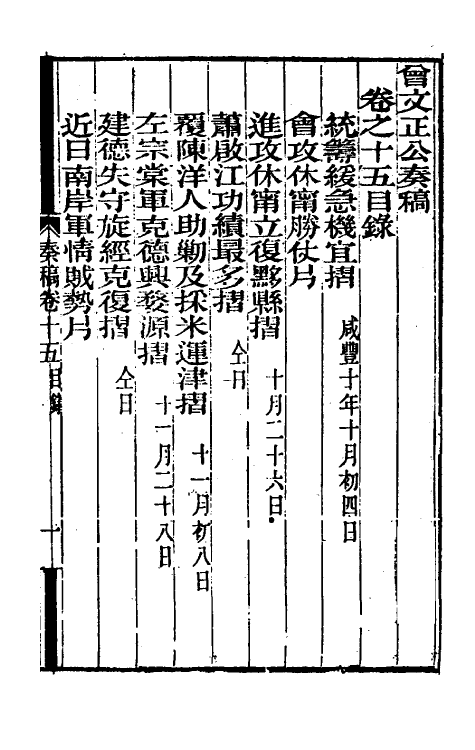 曾文正公奏稿
卷之十五目錄
統籌緩急機宜摺 咸豐十年十月初四日
會攻休甯勝仗片
進攻休甯立復黟縣摺 十月二十六日
蕭啟江功績最多摺 仝日
覆陳洋人助勦及採米運津摺 十一月初八日
左宗棠軍克德興婺源摺 十一月二十八日
建德失守旋經克復摺 仝日
近日南岸軍情賊勢片
奏稿卷十五目錄 一